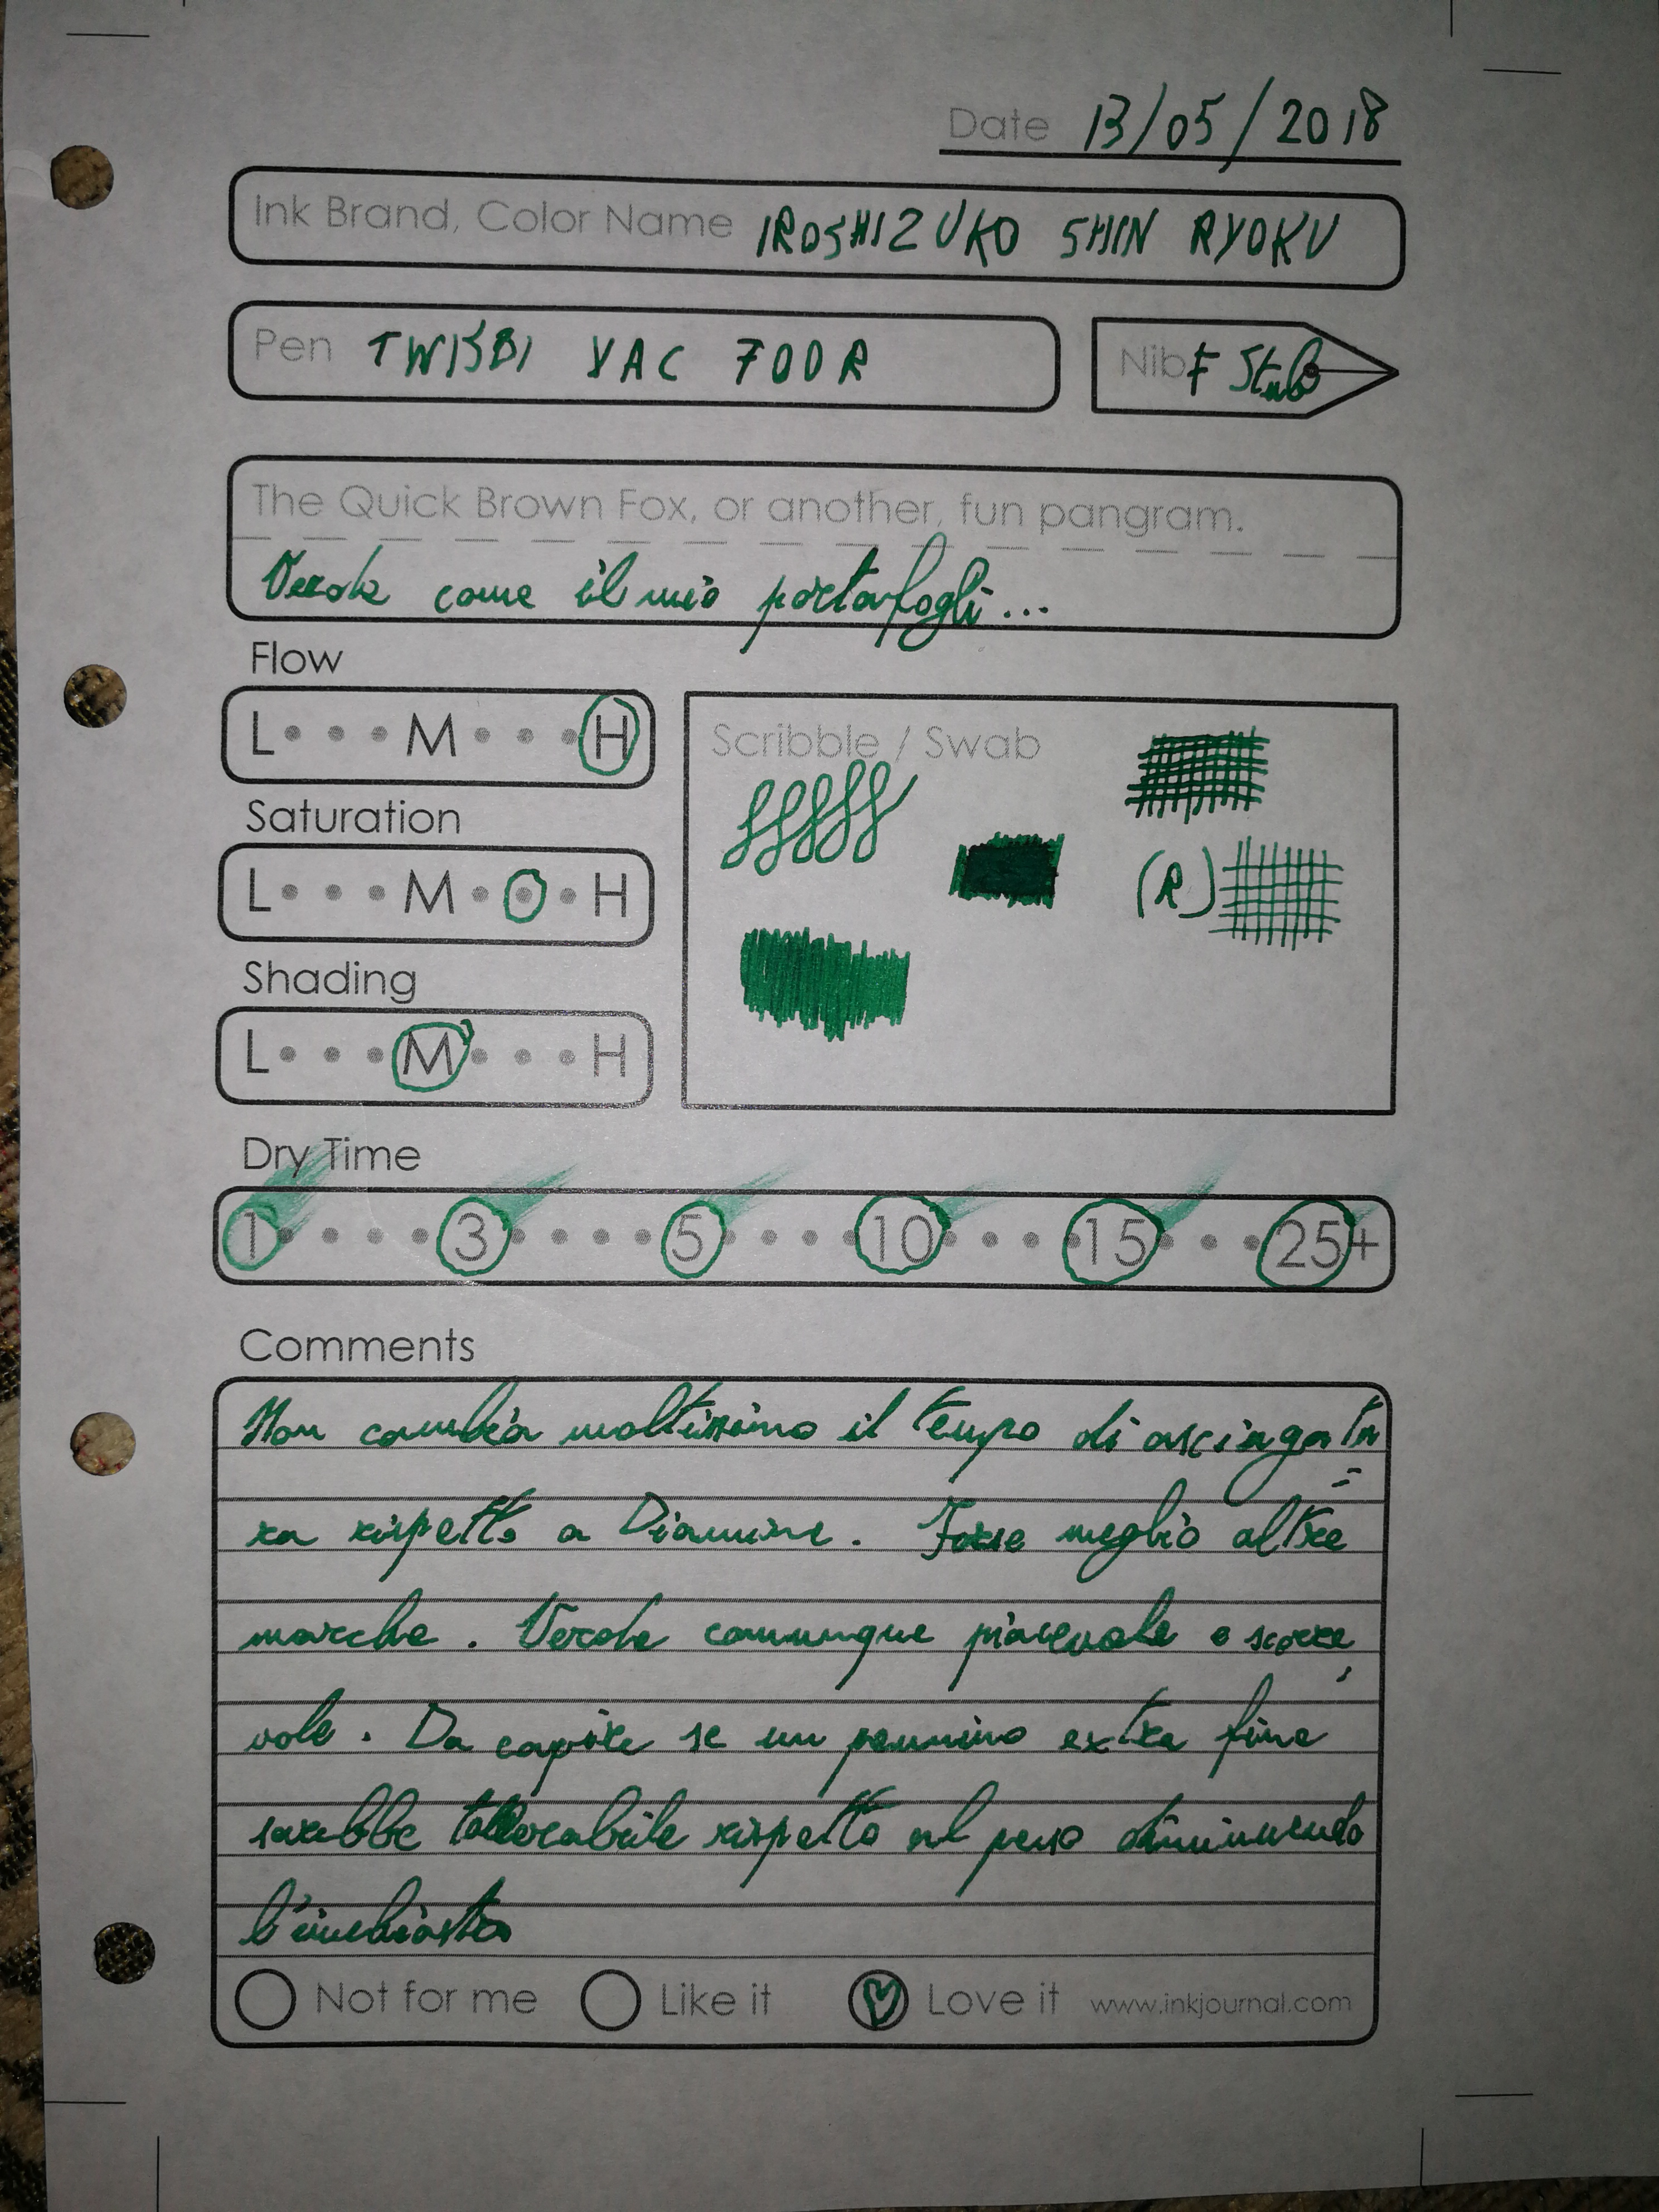 Date 13/05/2018
Ink Brand, Color Name IROSHIZUKO SHIN RYOKU
Pen TWISBI VAC 700R
Nib F Stub
The Quick Brown Fox, or another, fun pangram.
Verde come il mio portafogli...
Flow
L M H
Scribble / Swab
Saturation
L M H
(R)
Shading
L M H
Dry Time
1 3 5 10 15 25+
Comments
Non cambia moltissimo il tempo di asciugatu=
ra rispetto a Diamine. Forse meglio altre
marche. Verde comunque piacevole e scorre,
vole. Da capire se un pennino extra fine
sarebbe tollerabile rispetto al peso diminuendo
l'inchiostro
Not for me Like it Love it www.inkjournal.com